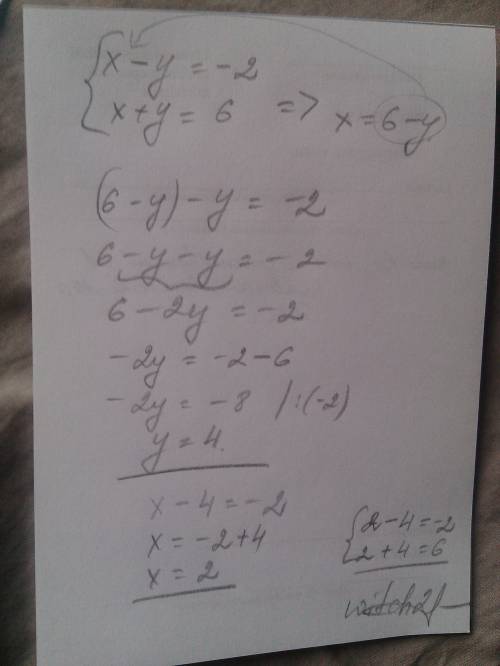 x - y = -2
x + y = 6 => x = 6 - y
(6 - y) - y = -2
6 - y - y = -2
6 - 2y = -2
-2y = -2 - 6
-2y = -8 /:(-2)
y = 4.
x - 4 = -2
x = -2 + 4
x = 2
2 - 4 = -2
2 + 4 = 6